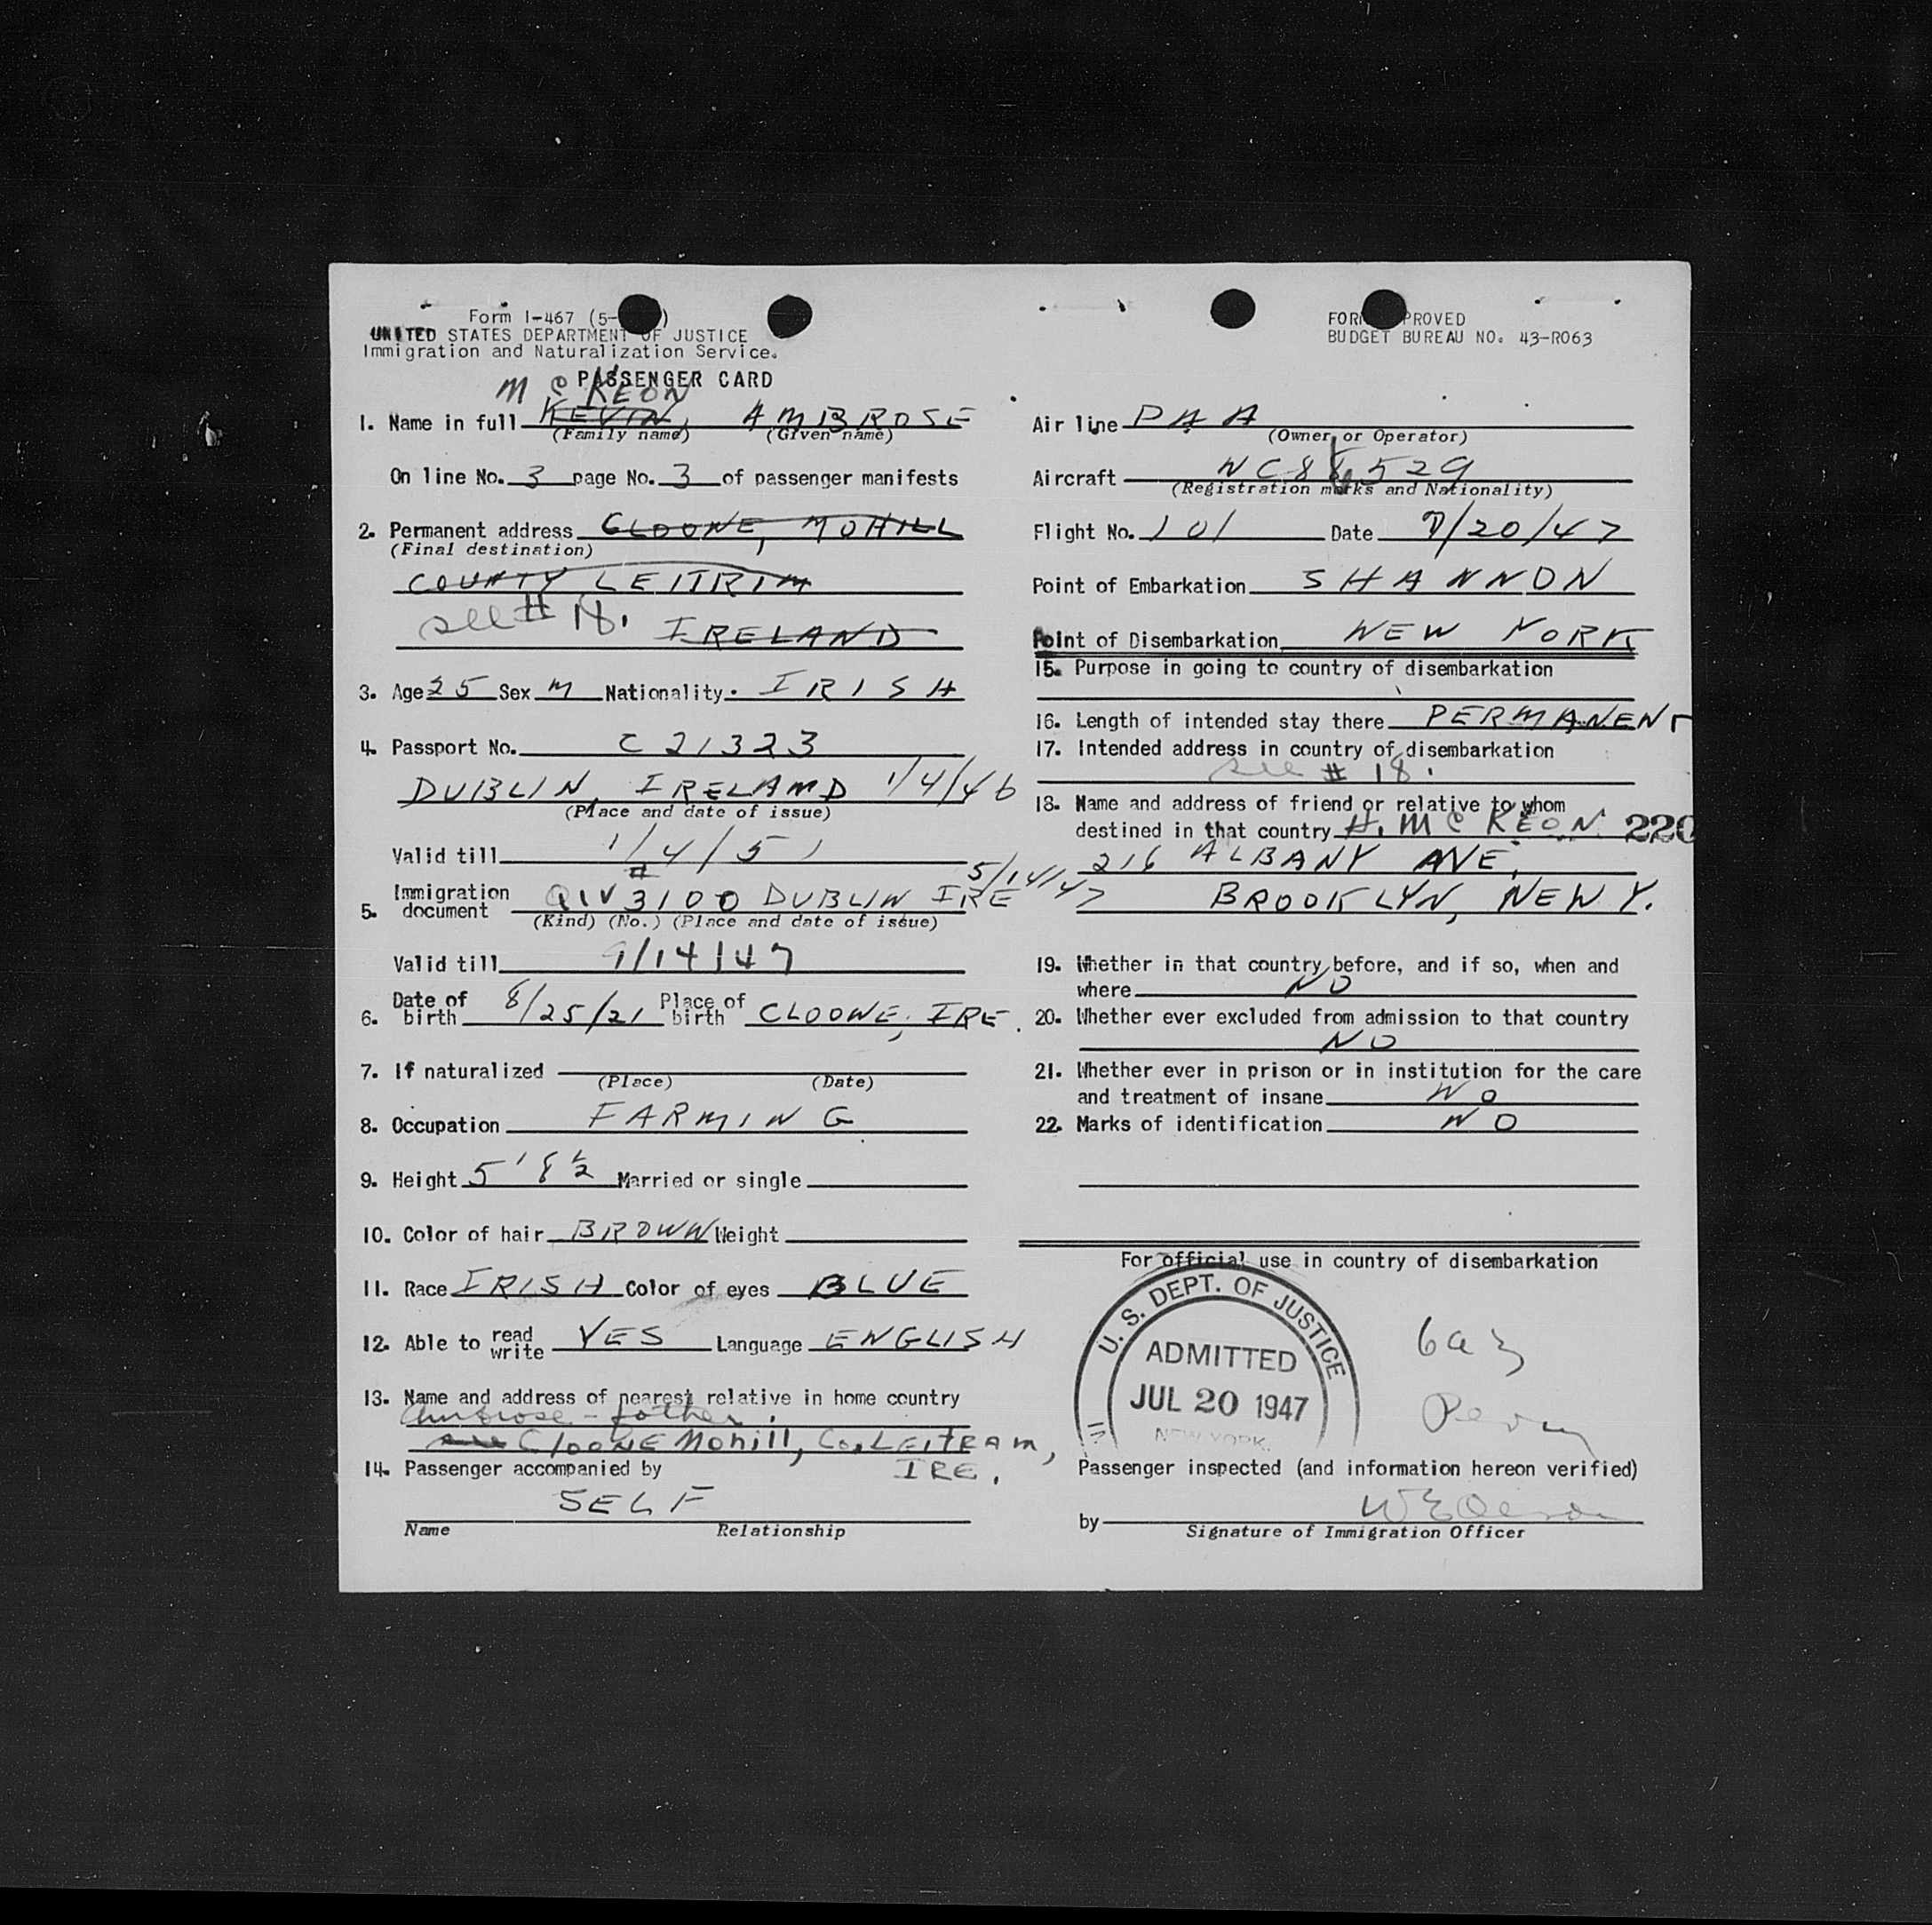 Form I-467 (5-
UNITED STATES DEPARTMENT OF JUSTICE
Immigration and Naturalization Service.
PASSENGER CARD
McKEON
1. Name in full KEVIN, AMBROSE
(Family name) (Given name)
On line No. 3 page No. 3 of passenger manifests
2. Permanent address CLOONE, MOHILL
(Final destination)
COUNTY LEITRIM
see # 18. IRELAND
3. Age 25 Sex M Nationality. IRISH
4. Passport No. C 21323
DUBLIN, IRELAND 1/4/46
(Place and date of issue)
Valid till 1/4/51
5. Immigration document QIV 3100 DUBLIN IRE 5/14/47
(Kind) (No.) (Place and date of issue)
Valid till 9/14/47
6. Date of birth 8/25/21 Place of birth CLOONE, IRE.
7. If naturalized
(Place) (Date)
8. Occupation FARMING
9. Height 5' 8 1/2 Married or single
10. Color of hair BROWN Weight
11. Race IRISH Color of eyes BLUE
12. Able to read write YES Language ENGLISH
13. Name and address of nearest relative in home country
Ambrose - father.
CLOONE Mohill, Co. LEITRAM,
IRE.
14. Passenger accompanied by
SELF
Name Relationship
FORM PROVED
BUDGET BUREAU NO. 43-R063
Air line PAA
(Owner or Operator)
Aircraft NC88529
(Registration marks and Nationality)
Flight No. 101 Date 7/20/47
Point of Embarkation SHANNON
Point of Disembarkation NEW YORK
15. Purpose in going to country of disembarkation
16. Length of intended stay there PERMANENT
17. Intended address in country of disembarkation
see # 18.
18. Name and address of friend or relative to whom
destined in that country H. McKEON 220
216 ALBANY AVE,
BROOKLYN, NEW Y.
19. Whether in that country before, and if so, when and
where NO
20. Whether ever excluded from admission to that country
NO
21. Whether ever in prison or in institution for the care
and treatment of insane NO
22. Marks of identification NO
For official use in country of disembarkation
U. S. DEPT. OF JUSTICE
ADMITTED
JUL 20 1947
NEW YORK.
6a3
Passenger inspected (and information hereon verified)
by
Signature of Immigration Officer